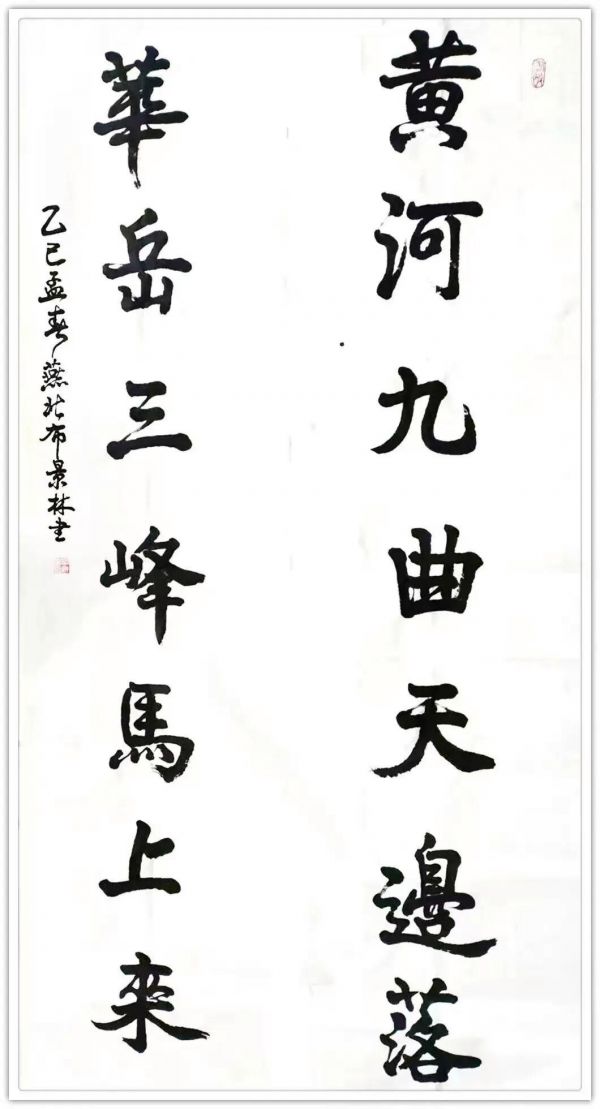 黄河九曲天邊落
華岳三峰馬上来
乙巳孟春燕北布景林书